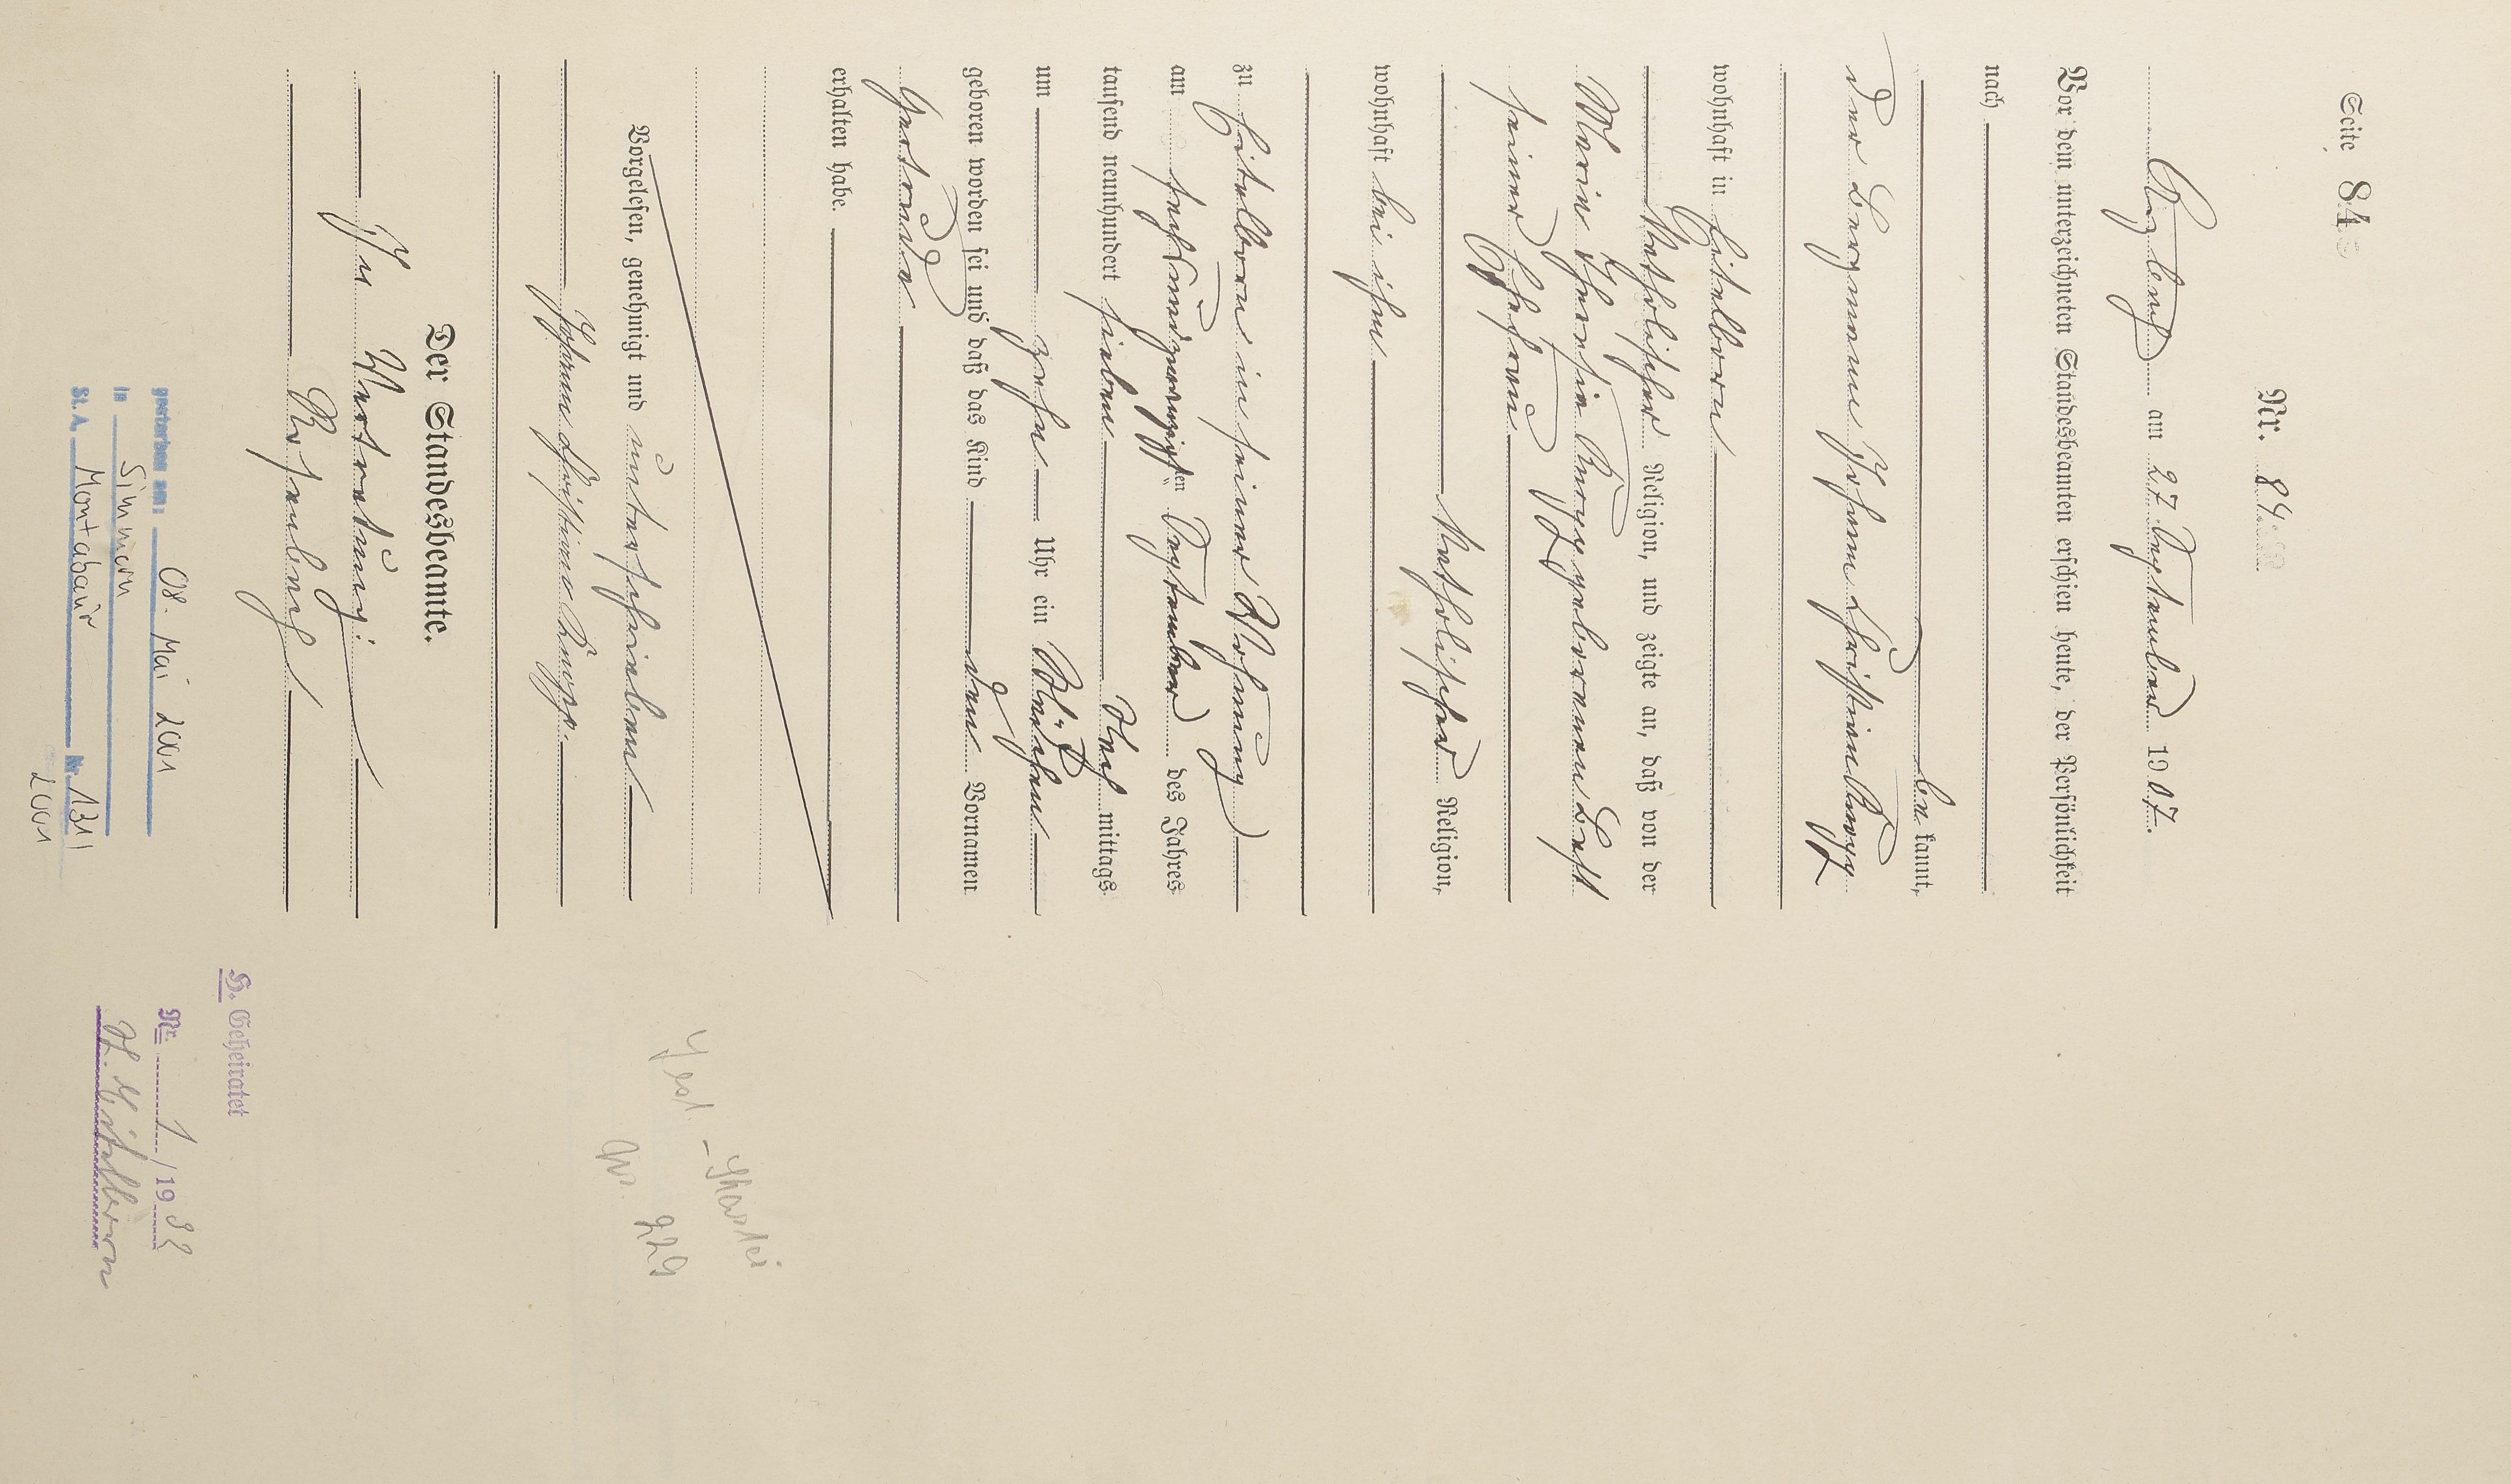 Seite 84
Nr. 84.
Arzbach am 27. September 1907.
Vor dem unterzeichneten Standesbeamten erschien heute, der Persönlichkeit
nach
bekannt,
der Bergmann Johann Christian Knopp
wohnhaft in Eitelborn
katholischer Religion, und zeigte an, daß von der
Maria Theresia Knopp geborenen Best
seiner Ehefrau
katholischer Religion,
wohnhaft bei ihm
zu Eitelborn in seiner Wohnung
am sechsundzwanzigsten September des Jahres
tausend neunhundert sieben Nachmittags
um zehn Uhr ein Mädchen
geboren worden sei und daß das Kind den Vornamen
Gertrude
erhalten habe.
Vorgelesen, genehmigt und unterschrieben
Johann Christian Knopp.
Der Standesbeamte.
In Vertretung:
gestorben am: 08. Mai 2001
in Simmern
St. A. Montabaur Nr. 131/
2001
H. Geheiratet
Nr. 1/1932
Eitelborn
Nr. 229